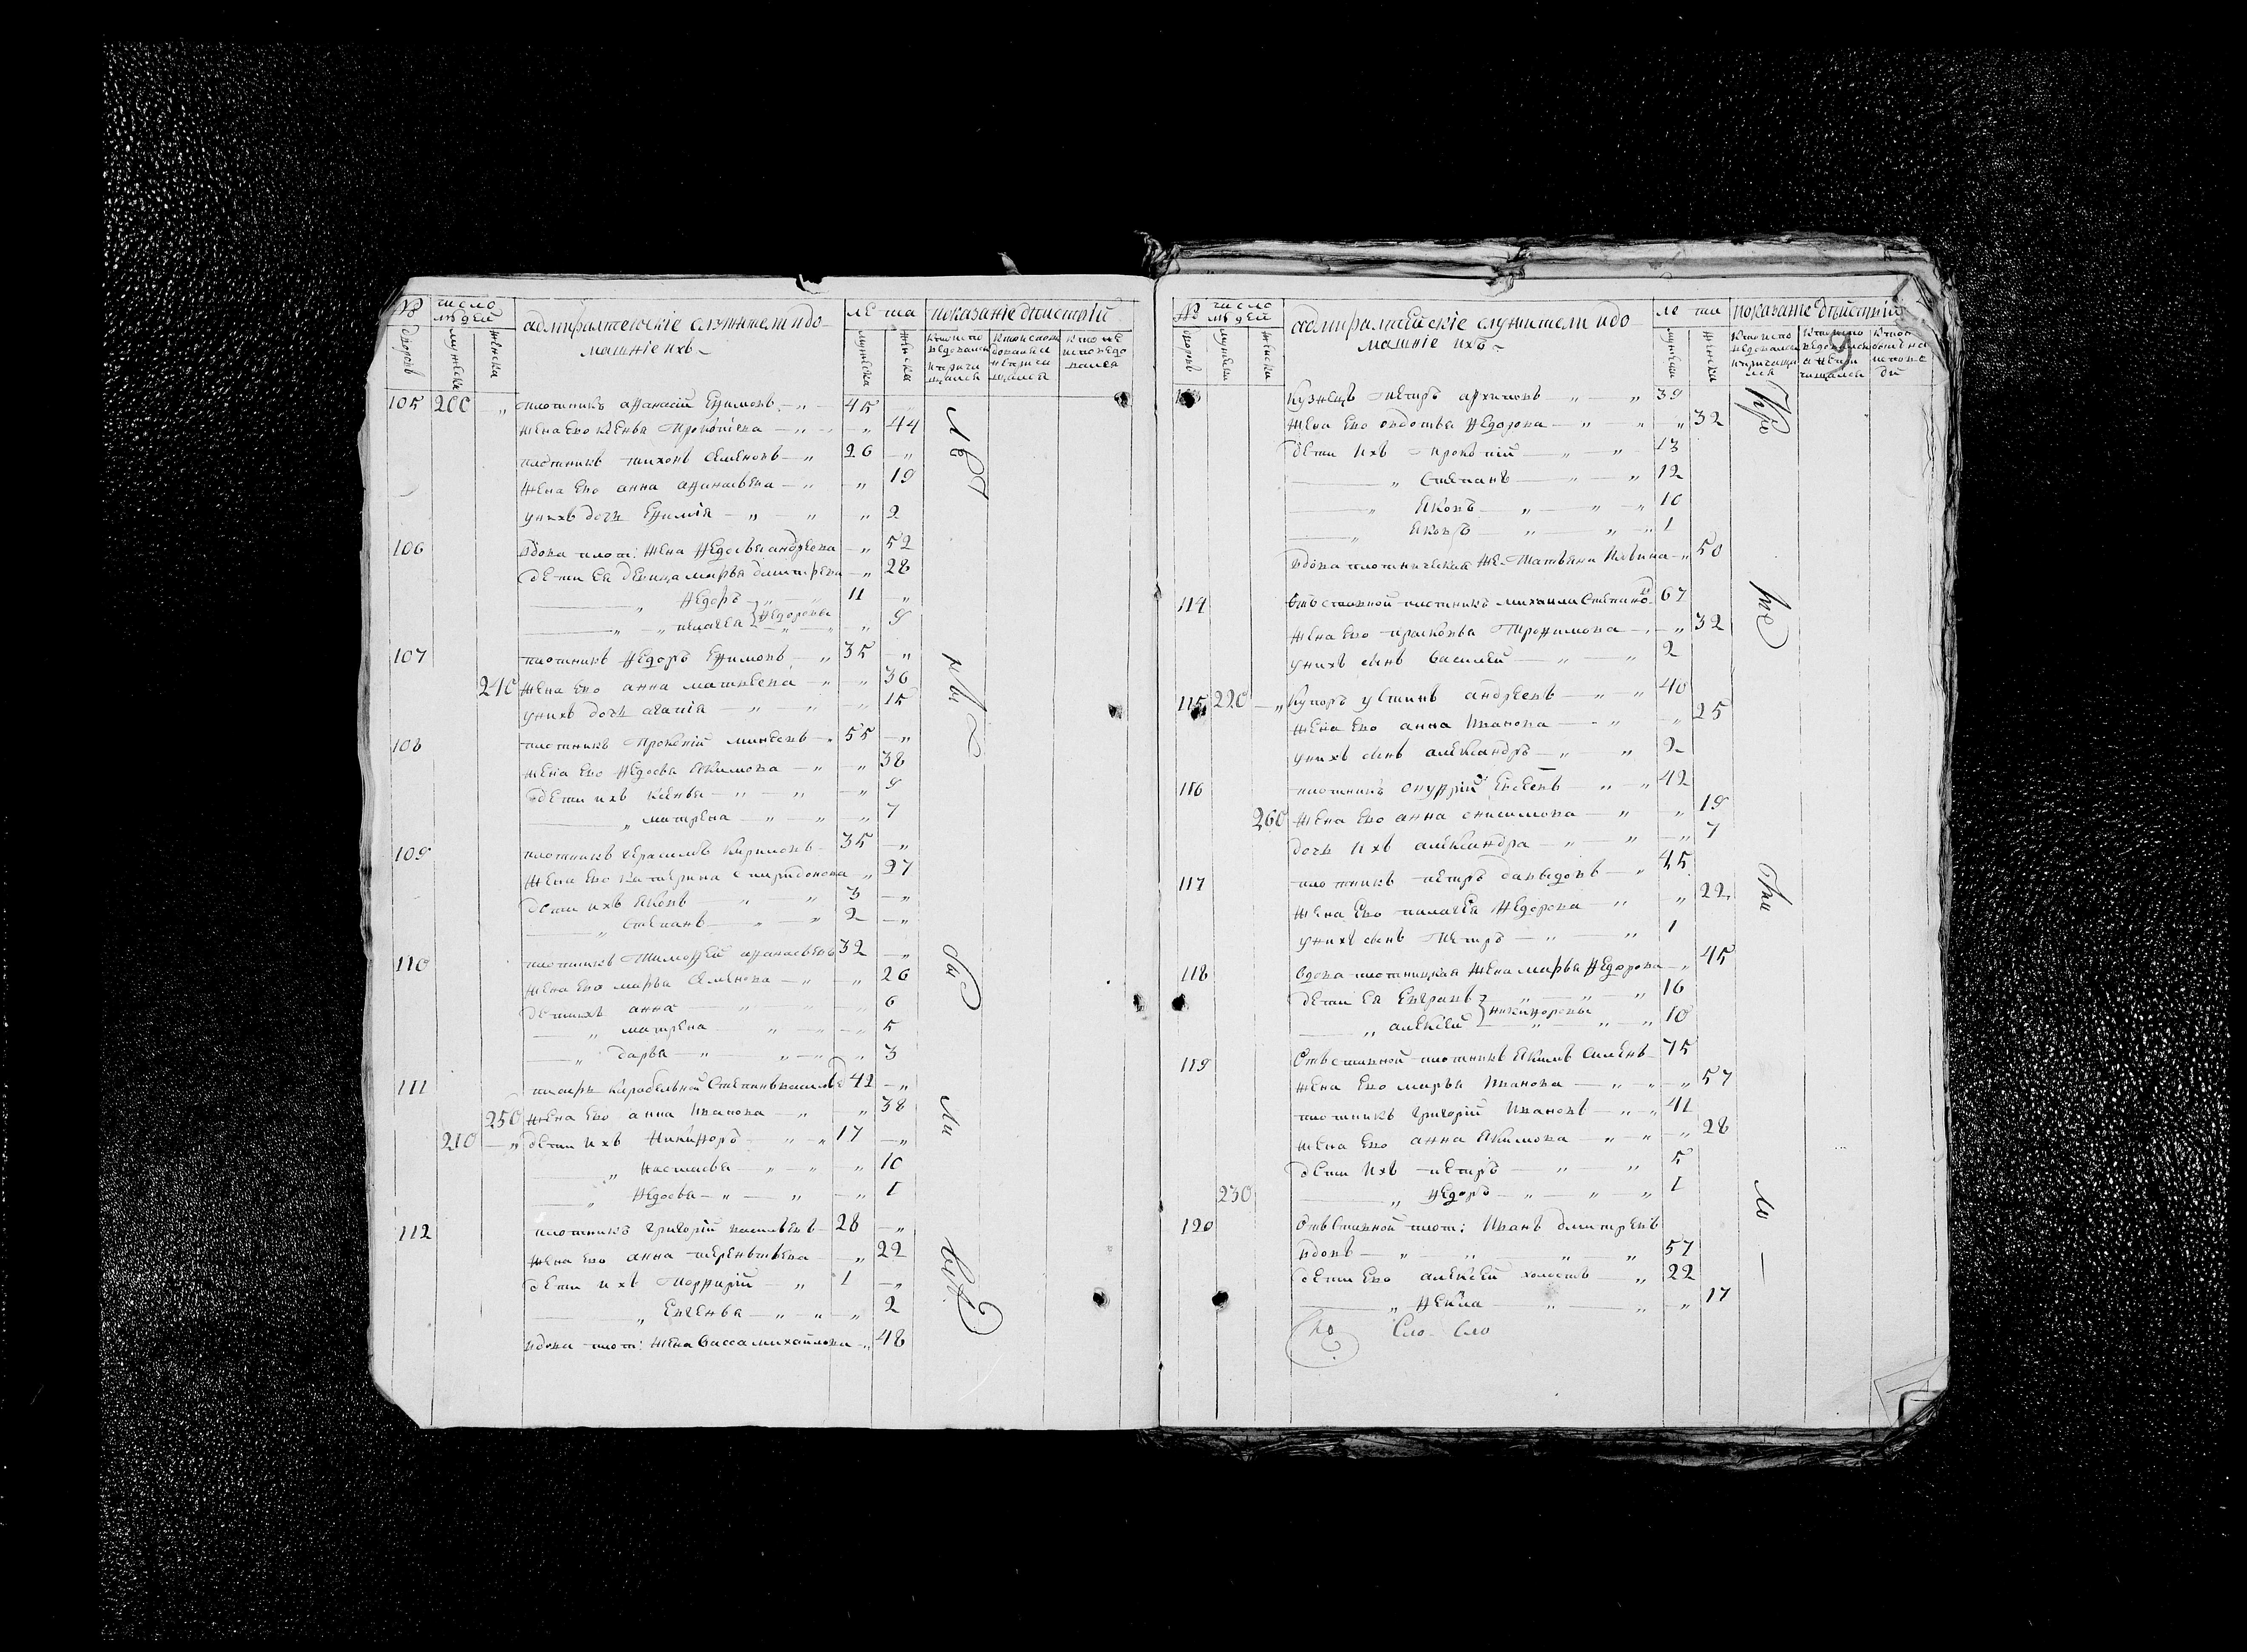 № число людей адмиралтейскіе служители и до- лѣта показаніе дѣйствій
дворов мужеска женска машніе ихъ мужеска женска
105 200 „ плотникъ афанасій Ефимовъ „ 45
жена Ево ксенья Прокопіева „ „ 44
плотникъ тихонъ Семеновъ „ 26 „
жена Ево анна афанасьева „ „ 19
унихъ дочь Ефимія „ „ „ 2
106 вдова плот: жена Федосья андреева „ 52
дети Ея девица марья дмитрева „ 28
„ Федоръ 11 „
„ „ пелагея } Федоровы „ 9
107 плотникъ Федоръ Ефимовъ „ 35 „
240 жена Ево анна матвеева „ „ 36
унихъ дочь агапія „ „ „ 15
108 плотникъ Прокопій минеевъ „ 55 „
жена Ево Федосья Якимова „ „ 38
дети ихъ ксенья „ „ „ 9
„ матрена „ „ „ 7
109 плотникъ герасимъ 35 „
жена Ево катерина спиридонова „ 27
дети ихъ Яковъ „ „ 3 „
„ степанъ „ 2 „
110 плотникъ Тимофей афанасьевъ 32 „
жена Ево марья Семенова „ „ 26
дети ихъ анна „ 6
„ матрена „ „ 5
„ дарья „ „ „ 3
111 карабельной Степанъ васильевъ 42 „
250 жена Ево анна Иванова „ „ 38
210 „ дети ихъ Никифоръ „ „ 17 „
„ настасья „ „ „ 10
„ Федосья „ „ „ 1
112 плотникъ григорій васильевъ 28 „
жена Ево анна терентьева „ 22
дети ихъ Порфирій „ 1 „
„ Евгенья „ „ „ 2
вдова плот: жена васса михайлова „ 48
№ число людей адмиралтейскіе служители и до- лѣта показаніе дѣйствій
дворов мужеска женска машніе ихъ мужеска женска
кузнецъ петръ архиповъ „ „ 39
жена Ево авдотья Федорова „ „ „ 32
дети ихъ Прокопій „ „ 13
„ Степанъ „ „ 12
„ Яковъ „ „ „ 10
„ Яковъ „ „ „ 1
вдова плотническая же. Татьяна „ 50
114 Отставной плотникъ михаила Степановъ 67
жена Ево прасковья Трофимова „ „ 32
унихъ сынъ василей „ „ 2
115 220 „ Купоръ устинъ андреевъ „ „ 40
жена Ево анна Иванова „ „ 25
унихъ сынъ александръ „ „ 2
116 плотникъ онуфрій Евсеевъ „ „ 42
260 жена Ево анна онисимова „ „ 19
дочь ихъ александра „ „ „ 7
117 плотникъ петръ давыдовъ „ 45
жена Ево пелагея Федорова „ „ 22
унихъ сынъ Петръ „ „ 1
118 вдова плотницкая жена марья Федорова „ 45
дети Ея Евграфъ „ „ „ 16
„ алексей } никифоровы „ „ „ 10
119 Отставной плотникъ Якимъ 75
жена Ево марья Иванова „ „ „ 57
плотникъ григорій Ивановъ „ „ 41
жена Ево анна Якимова „ „ „ 28
дети ихъ петръ „ „ 5
230 „ Федоръ „ „ „ 1
120 Отвставной плот: Иванъ дмитревъ
вдовъ „ „ „ „ 57
дети Ево алексей холостъ „ 22
„ Фекла „ „ „ 17